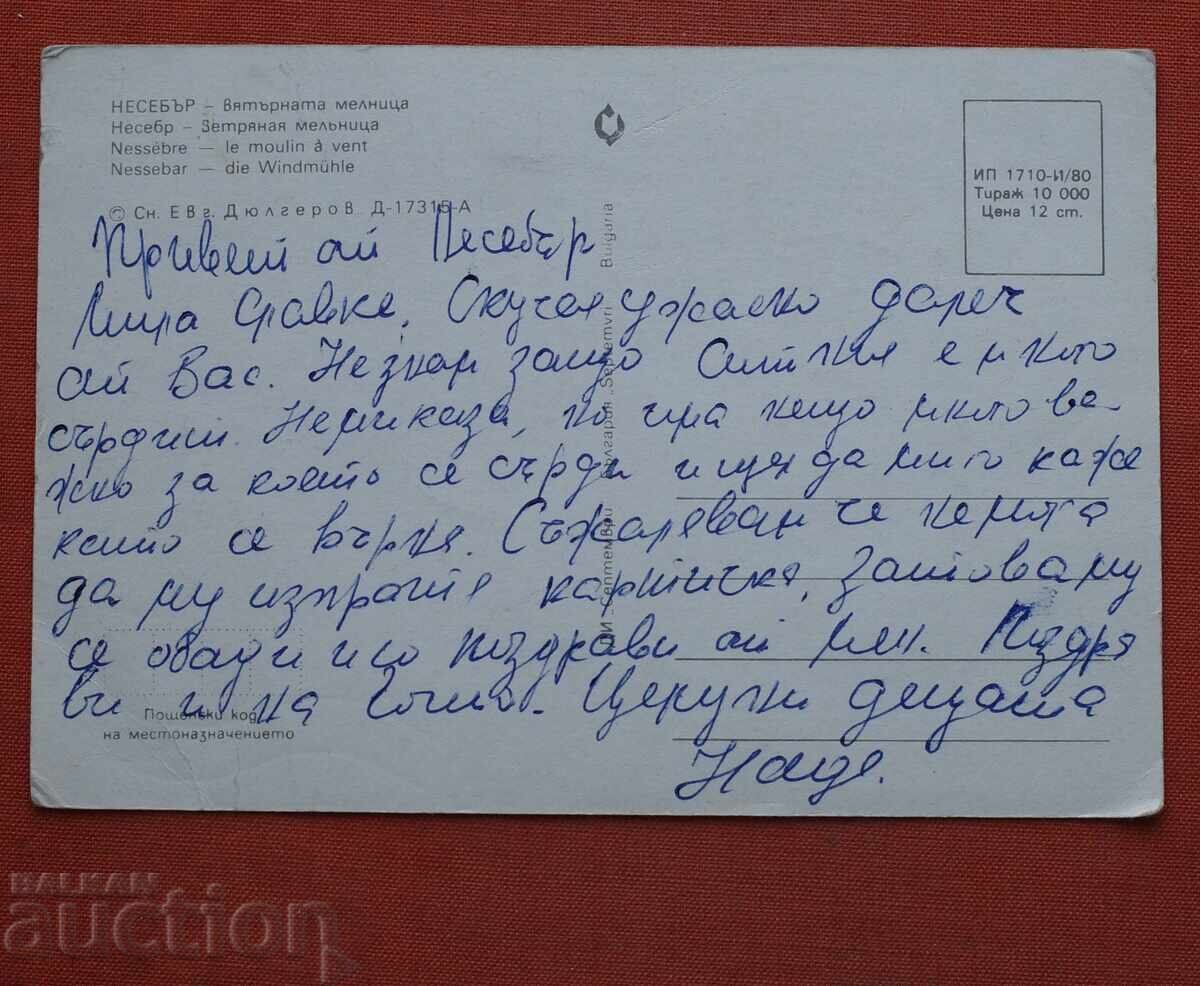 НЕСЕБЪР – Вятърната мелница
Несебр – Зетряная мельница
Nessèbre — le moulin à vent
Nessebar — die Windmühle
© Сн. Евг. Дюлгеров Д-17315-А
ИП 1710-И/80
Тираж 10 000
Цена 12 ст.
ДИ „Септември" България „Septemvri" Bulgaria
Привет от Несебър
Мила Славке, Скучая ужасно далеч
от Вас. Незнам защо е много
сърдит. Не ми каза, но има нещо много ва-
жно за което се сърди и ще да ми го каже
като се върна. Съжалявам че немога
да му изпратя картичка, затова му
се обади и го поздрави от мен. Поздра
ви и на Целуни децата
Надя.
Пощенски код
на местоназначението
BALKAN
auction